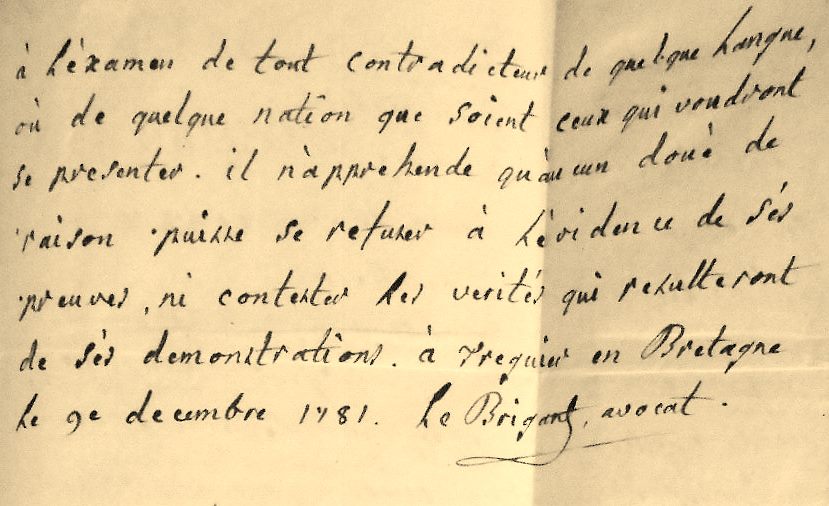 à l'èxamen de tout contradicteur de quelque Langue,
où de quelque nation que soient ceux qui voudront
se presenter. il n'apprehende qu'aucun douè de
raison puisse se refuser à l'èvidence de sès
preuves, ni contester les veritès qui resulteront
de sès demonstrations. à Treguier en Bretagne
le 9e decembre 1781. Le Brigant, avocat.